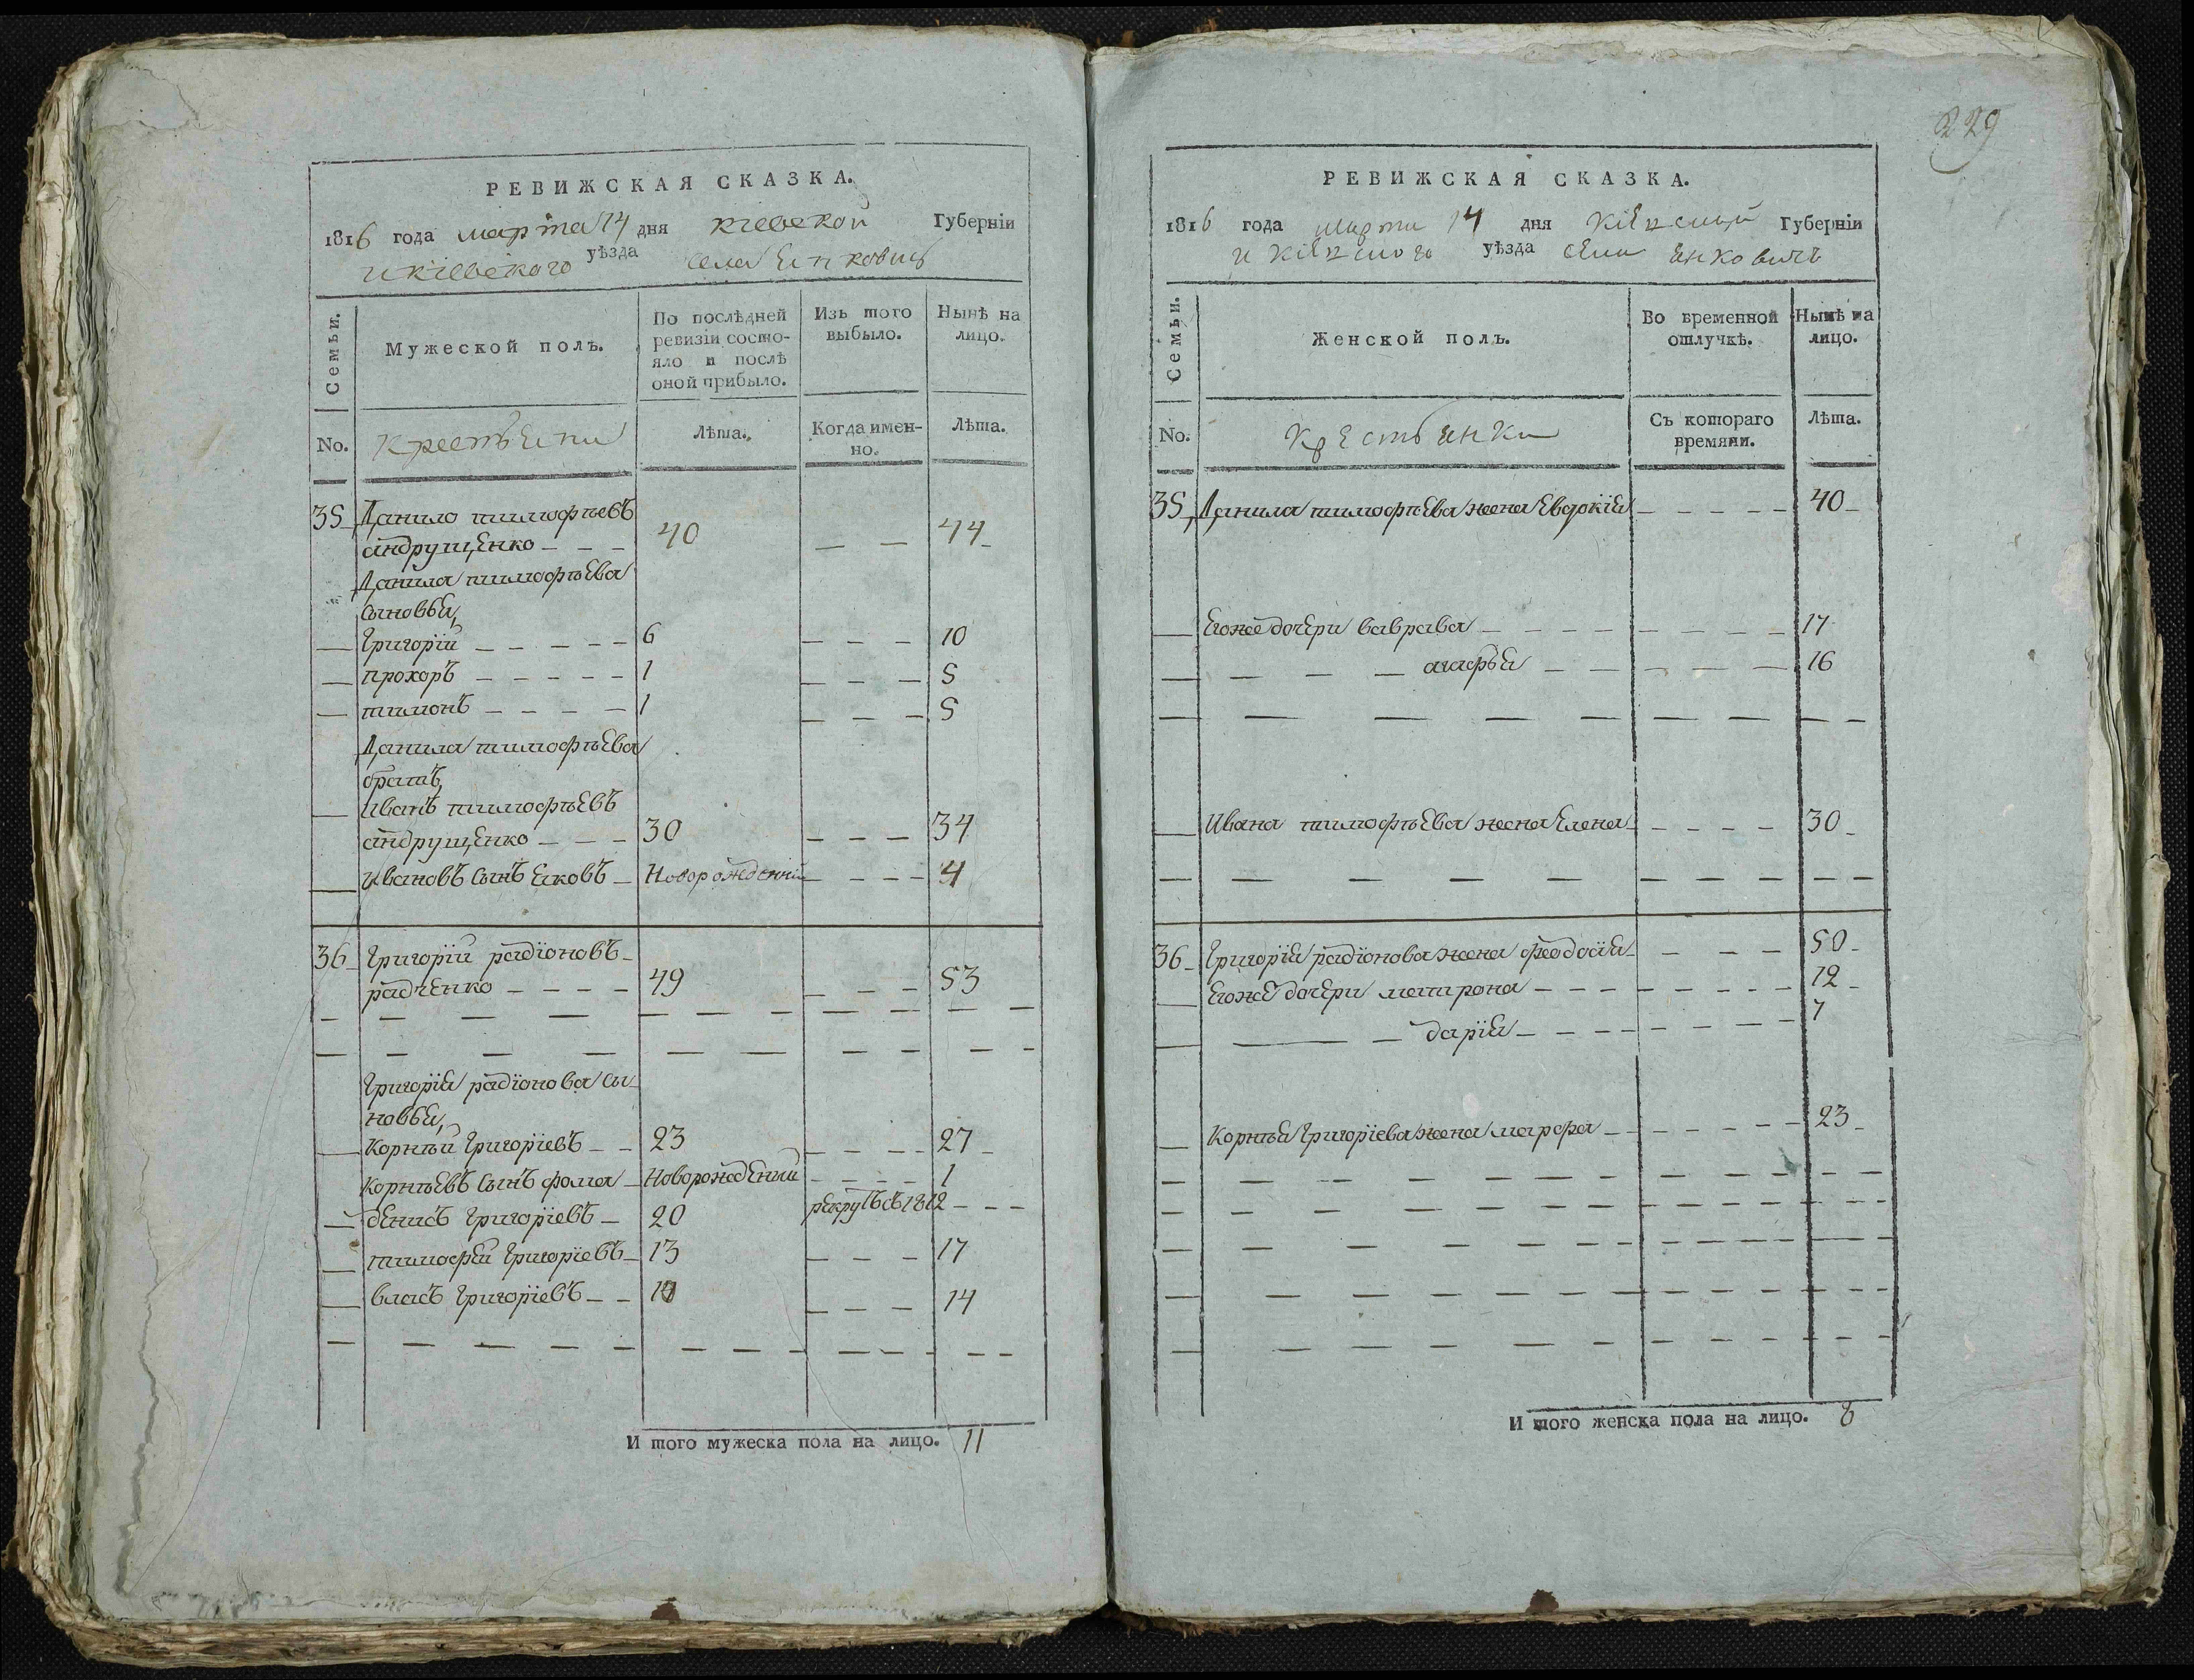 РЕВИЖСКАЯ СКАЗКА.
1816 года марта 14 дня кіевской Губерніи
и кіевского уѣзда села Янковичь
Семьи.
Мужеской полъ.
По послѣдней ревизіи состо-
яло и послѣ
оной прибыло.
Изъ того
выбыло.
Нынѣ на
лицо.
No.
крестьяни
Лѣта.
Когда имен-
но.
Лѣта.
35 Данило тимофѣевъ
андрущенко 40 44
Данила тимофѣева
сыновья,
Григорій 6 10
прохоръ 1 5
тимонъ 1 5
Данила тимофѣева
братъ,
Иванъ тимофѣевъ
андрущенко 30 34
Ивановъ сынъ яковъ Новорожденній 4
36 Григорій радїоновъ
радченко 49 53
Григорія радїонова сы-
новья,
корнѣй Григоріевъ 23 27
корнѣевъ сынъ фома Новорожденый 1
денисъ Григорїевъ 20 рекрутъ съ 1812
тимофей Григорїевъ 13 17
власъ Григорїевъ 10 14
И того мужеска пола на лицо. 11
229
РЕВИЖСКАЯ СКАЗКА.
1816 года марта 14 дня Кіевской Губерніи
и Кіевского уѣзда села Янковичь
Семьи.
Женской полъ.
Во временной
отлучкѣ.
Нынѣ на
лицо.
No.
Крестьянки
Съ котораго
времяни.
Лѣта.
35 Данила тимофѣева жена Евдокія 40
Егоже дочери вавравa 17
агафья 16
Ивана тимофѣева жена Елена 30
36 Григорія радїонова жена феодосія 50
Егоже дочери матрона 12
дарїя 7
Корнѣя Григорїева жена марфа 23
И того женска пола на лицо. 8